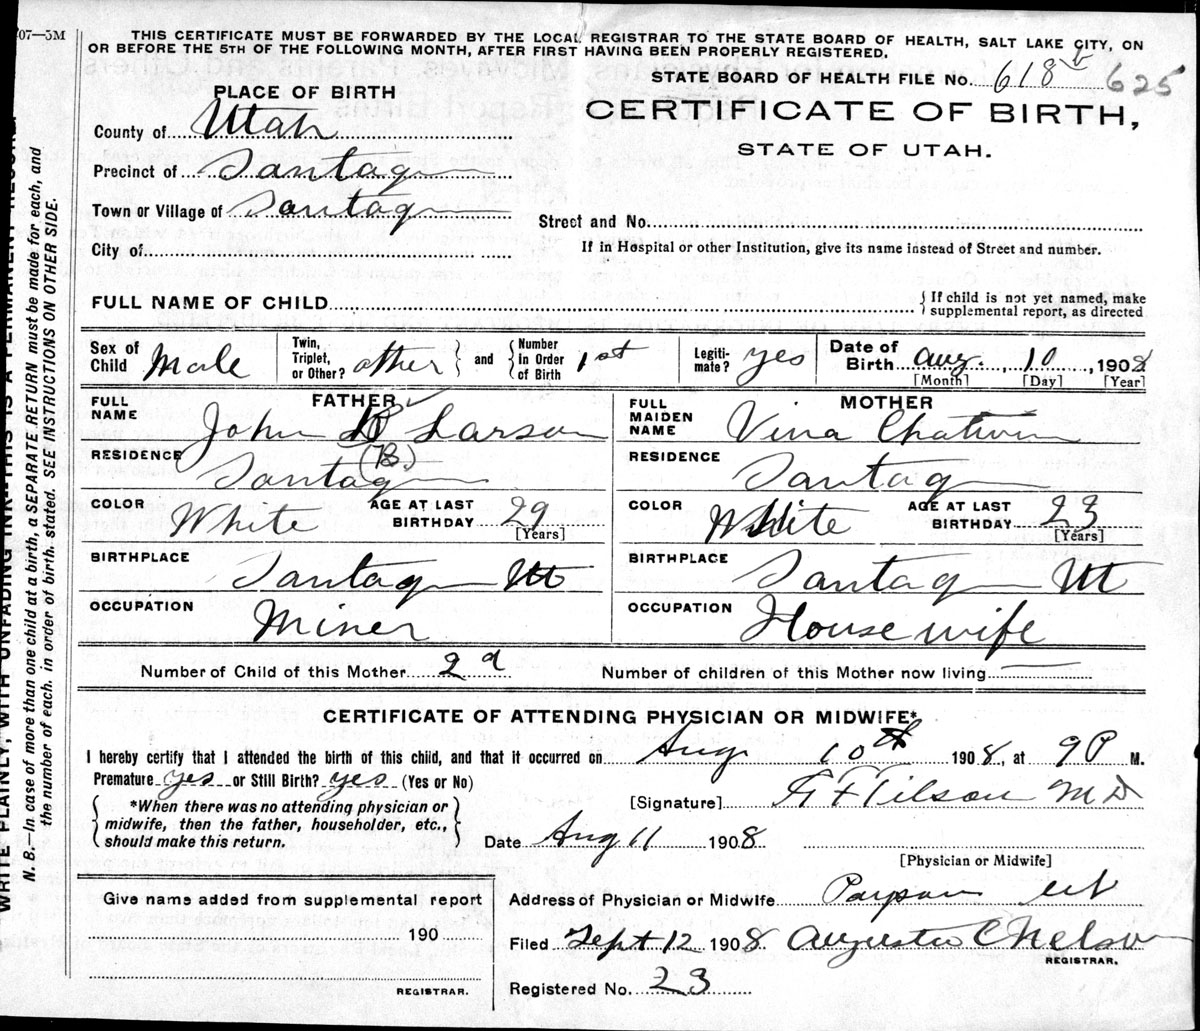 07—5M
THIS CERTIFICATE MUST BE FORWARDED BY THE LOCAL REGISTRAR TO THE STATE BOARD OF HEALTH, SALT LAKE CITY, ON
OR BEFORE THE 5TH OF THE FOLLOWING MONTH, AFTER FIRST HAVING BEEN PROPERLY REGISTERED.
STATE BOARD OF HEALTH FILE No. 618 625
PLACE OF BIRTH
CERTIFICATE OF BIRTH,
STATE OF UTAH.
County of Utah
Precinct of Santaq
Town or Village of Santaq
Street and No.
City of
If in Hospital or other Institution, give its name instead of Street and number.
FULL NAME OF CHILD
{ If child is not yet named, make
supplemental report, as directed
Sex of Child Male
Twin, Triplet, or Other? other } and { Number in Order of Birth 1st
Legiti-mate? yes
Date of Birth Aug. 10, 1908
[Month] [Day] [Year]
FATHER
FULL NAME John B Larson
(B.)
RESIDENCE Santaq
COLOR White
AGE AT LAST BIRTHDAY 29
[Years]
BIRTHPLACE Santaq Ut
OCCUPATION Miner
MOTHER
FULL MAIDEN NAME Vina Chatwin
RESIDENCE Santaq
COLOR White
AGE AT LAST BIRTHDAY 23
[Years]
BIRTHPLACE Santaq Ut
OCCUPATION House wife
Number of Child of this Mother 2d
Number of children of this Mother now living —
CERTIFICATE OF ATTENDING PHYSICIAN OR MIDWIFE*
I hereby certify that I attended the birth of this child, and that it occurred on Aug 10th 1908, at 9 P M.
Premature yes or Still Birth? yes (Yes or No)
{ *When there was no attending physician or
midwife, then the father, householder, etc.,
should make this return. }
[Signature] Tilson MD
Date Aug 11 1908
[Physician or Midwife]
Give name added from supplemental report
190
REGISTRAR.
Address of Physician or Midwife Payson Ut
Filed Sept 12 1908 Augusta C Nelson
REGISTRAR.
Registered No. 23
WRITE PLAINLY, WITH UNFADING INK—THIS IS A PERMANENT RECORD.
N. B.—In case of more than one child at a birth, a SEPARATE RETURN must be made for each, and
the number of each, in order of birth, stated. SEE INSTRUCTIONS ON OTHER SIDE.